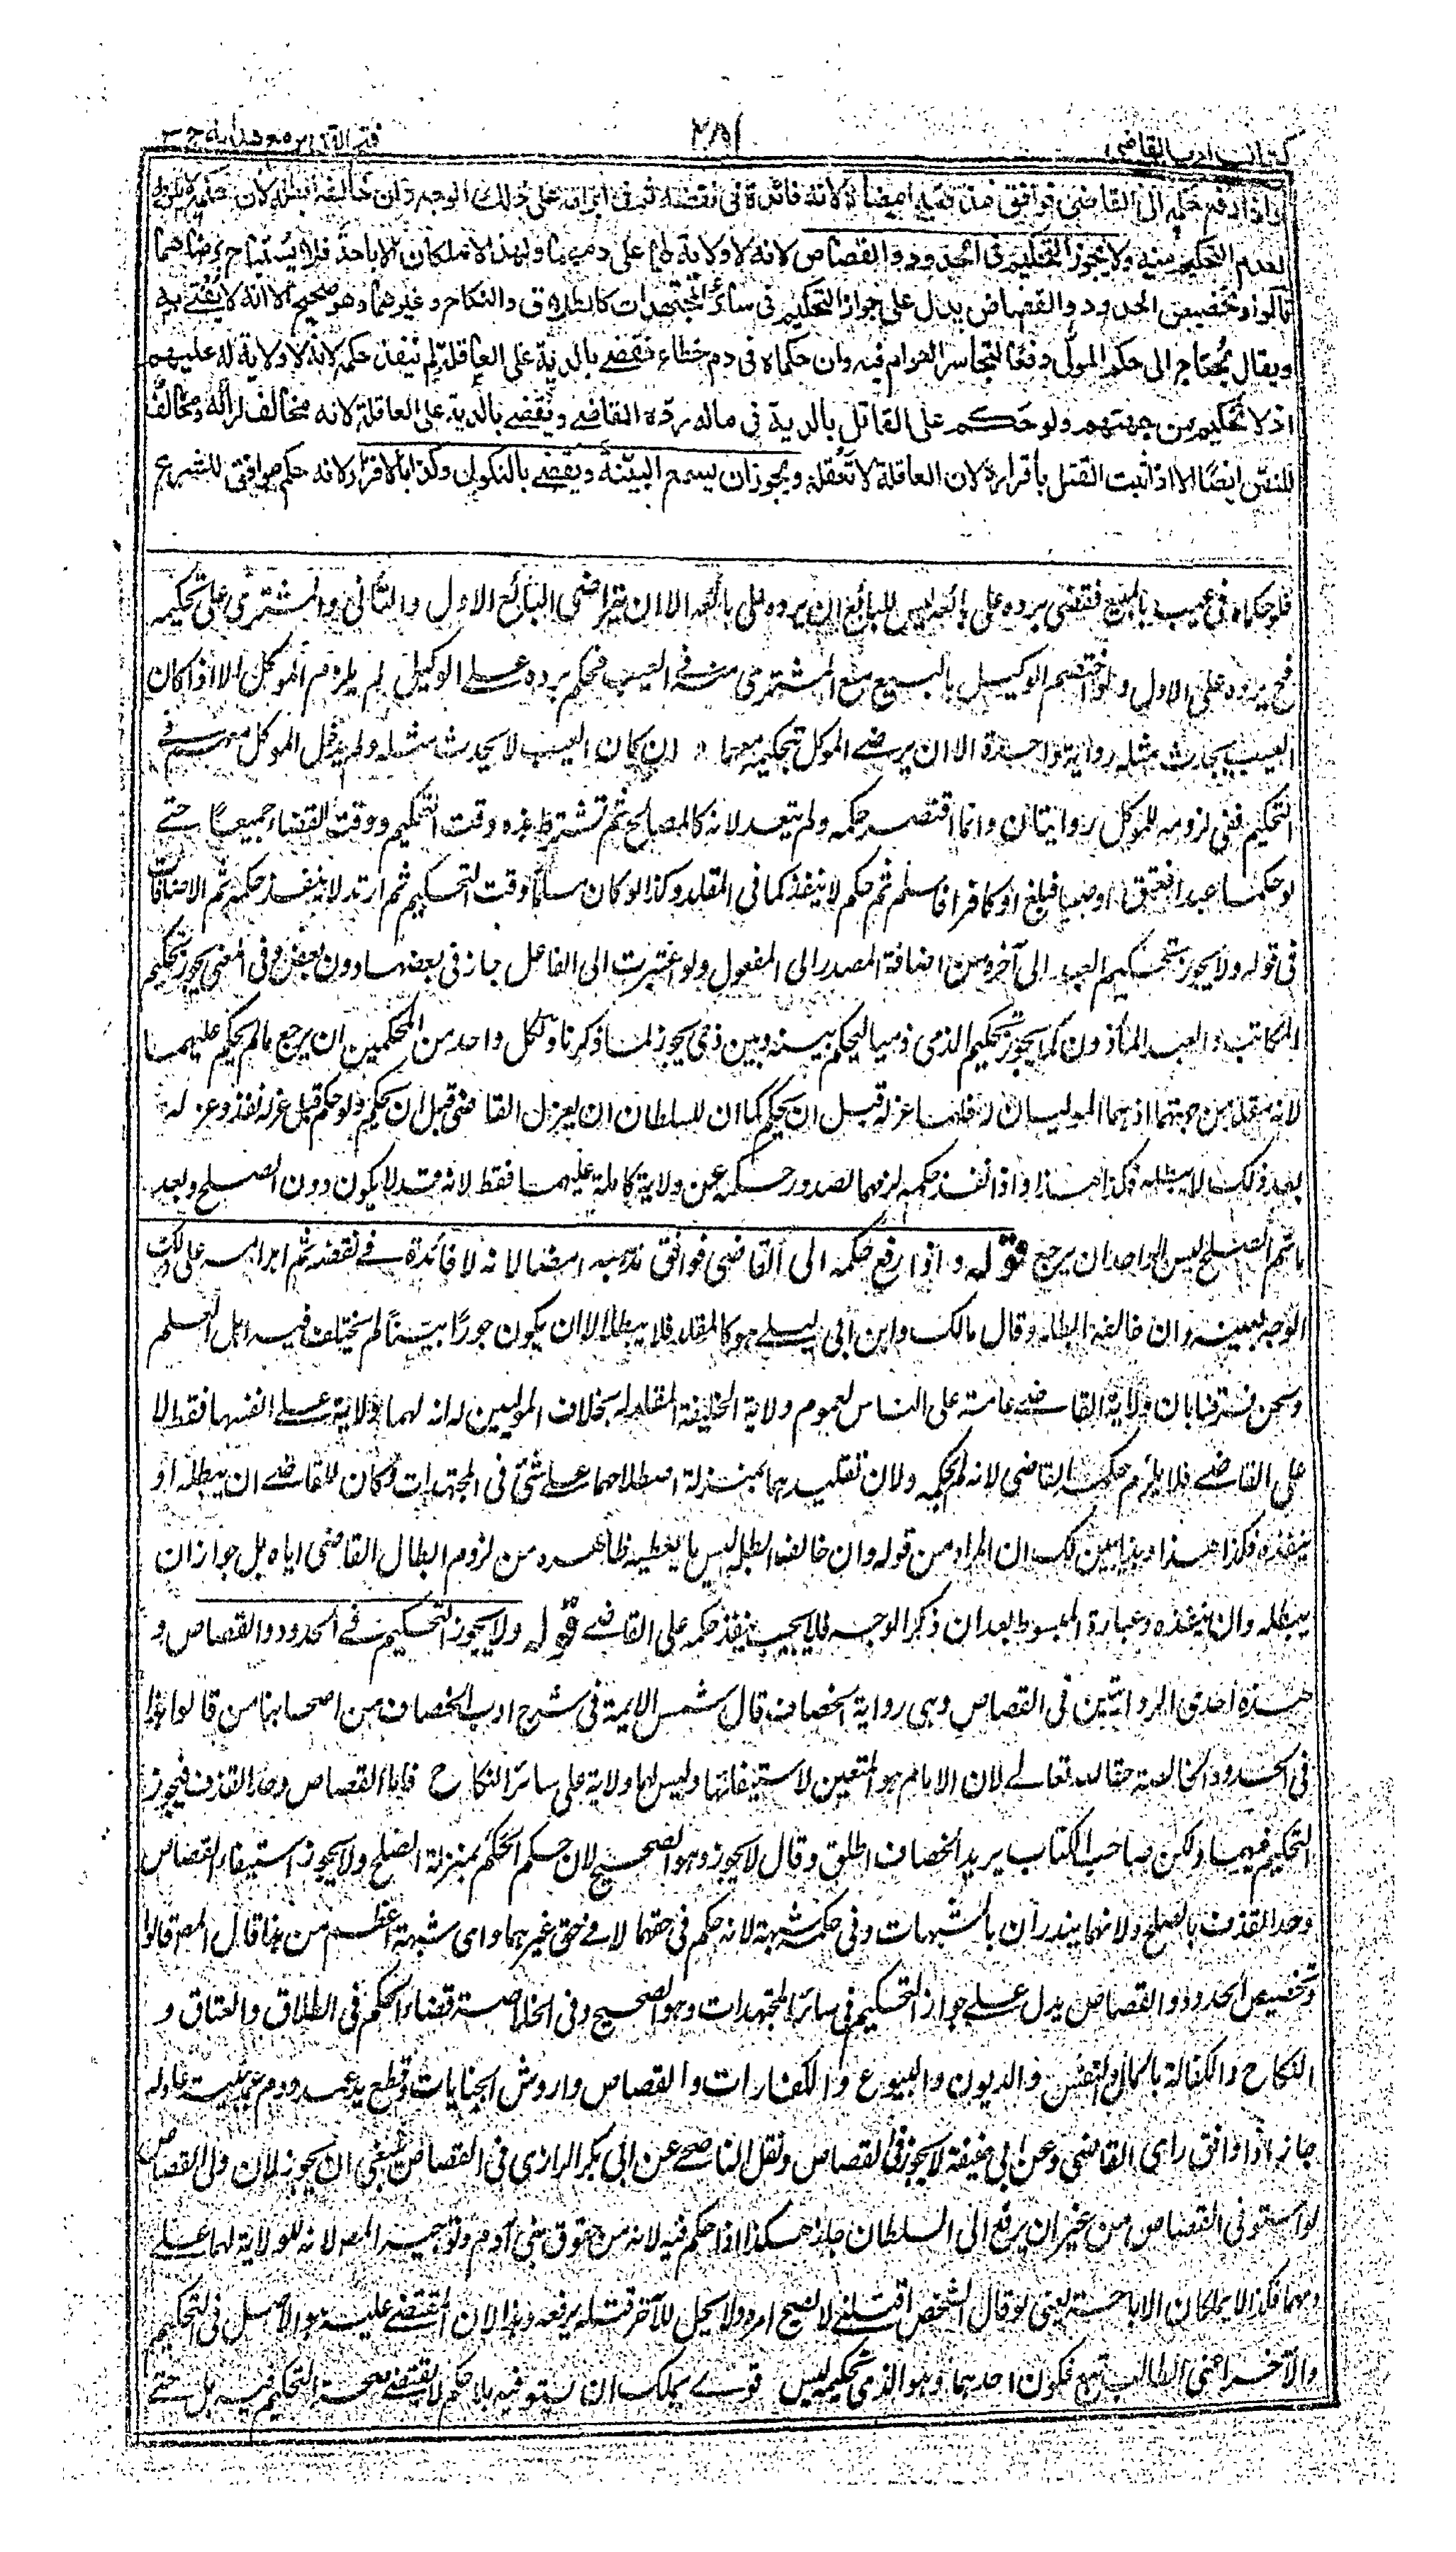 كتاب ادب القاضي
فتح القدير مع هداية ج ٣
واذا رفع حكمه الى القاضي فوافق مذهبه امضاه لانه لا فائدة في نقضه ثم في ابرامه على ذلك الوجه وان خالفه ابطله لان حكمه لا يلزمه
لعدم التحكيم منه ولا يجوز التحكيم في الحدود والقصاص لانه لا ولاية لهما على دمهما ولهذا لا يملكان الاباحة فلا يستباح برضاهما
قالوا وتخصيص الحدود والقصاص يدل على جواز التحكيم في سائر المجتهدات كالطلاق والنكاح وغيرهما وهو صحيح الا انه لا يفتى به
ويقال يحتاج الى حكم المولى دفعا لتجاسر العوام فيه وان حكماه في دم خطاء فقضے بالدية على العاقلة لم ينفذ حكمه لانه لا ولاية له عليهم
اذ لا تحكيم من جهتهم ولو حكم على القاتل بالدية في ماله رده القاضے ويقضے بالدية على العاقلة لانه مخالف لرأيه ومخالف
للنص ايضًا الا اذا ثبت القتل بأقراره لان العاقلة لا تعقله ويجوز ان يسمع البيّنة ويقضے بالنكول وكذا بالاقرار لانه حكم موافق للشرع
فلو حكماه في عيب بالمبيع فقضى برده على بائعه ليس للبائع ان يرده على بائعه الا ان يتراضى البائع الاول والثاني والمشترى على تحكيمه
فح يرده على الاول ولو اختصم الوكيل بالبيع مع المشترى منه في العيب فحكم برده علے الوكيل لم يلزم الموكل الا اذا كان
العيب يحدث مثله رواية واحدة الا ان يرضے الموكل بتحكيمه معهما ان كان العيب لا يحدث مثله ولم يدخل الموكل معهم في
التحكيم ففي لزومه للموكل روايتان وانما اقتصر حكمه ولم يتعد لانه كالمصالح ثم تشترط هذه وقت التحكيم ووقت القضاء جميعًا حتے
لو حكما عبدا فعتق او صبيا فبلغ او كافرا فاسلم ثم حكم لا ينفذ كما في المقلد وكذا لو كان مسلما وقت التحكيم ثم ارتد لا ينفذ حكمه ثم الاضافات
في قوله ولا يجوز تحكيم العبد الى آخره من اضافة المصدر الى المفعول ولو اعتبرت الى الفاعل جاز في بعضها دون بعض وفي المغني يجوز تحكيم
المكاتب والعبد المأذون كما يجوز تحكيم الذمي ذميا ليحكم بينه وبين ذمي يجوز لما ذكرنا ولكل واحد من المحكمين ان يرجع ما لم يحكم عليهما
لانه مقلد من جهتهما اذ هما الموليان له فلهما عزله قبل ان يحكم كما ان للسلطان ان يعزل القاضي قبل ان يحكم ولو حكم قبل عزله نفذ وعزله
بعد ذلك لا يبطله فكذا هذا واذا نفذ حكمه لزمهما لصدور حكمه عن ولاية كاملة عليهما فقط لانه قد لا يكون دون الصلح وبعد
ما تم الصلح ليس لواحد ان يرجع قوله واذا رفع حكمه الى القاضي فوافق مذهبه امضاه لانه لا فائدة في نقضه ثم ابرامه على ذلك
الوجه بعينه وان خالفه ابطله وقال مالك وابن ابي ليلے هو كالمقلد فلا يبطله الا ان يكون جورًا بينًا لم يختلف فيه اهل العلم
ونحن فرقنا بان ولاية القاضے عامة على الناس لعموم ولاية الخليفة المقلد له بخلاف الموليين له انه لهما ولاية علے انفسهما فقط لا
على القاضے فلا يلزم حكمه القاضي لانه لم يحكمه ولان تقليدهما بمنزلة اصطلاحهما علے شئ في المجتهدات وكان للقاضے ان يبطله او
ينفذه فكذا هذا وبهذا يتبين لك ان المراد من قوله وان خالفه ابطله ليس ما يعطيه ظاهره من لزوم ابطال القاضي اياه بل جواز ان
يبطله وان ينفذه وعبارة المبسوط بعد ان ذكر الوجه فلا يجب تنفيذ حكمه على القاضے قوله ولا يجوز التحكيم في الحدود والقصاص و
هذه احدى الروايتين في القصاص وهي رواية الخصاف قال شمس الايمة في شرح ادب الخصاف من اصحابنا من قالوا هذا
في الحدود الخالصة حقا لله تعالے لان الامام هو المتعين لاستيفائها وليس لهما ولاية على سائر الناس فاما القصاص وحد القذف فيجوز
التحكيم فيهما ولكن صاحب الكتاب يريد الخصاف اطلق وقال لا يجوز وهو الصحيح لان حكم الحكم بمنزلة الصلح ولا يجوز استيفاء القصاص
وحد القذف بالصلح ولانهما يندرآن بالشبهات وفي حكمه شبهة لانه حكم في حقهما لا في حق غيرهما واى شبهة اعظم من هذا قال المص قالوا
وتخصيص الحدود والقصاص يدل علے جواز التحكيم في سائر المجتهدات وهو الصحيح وفي الخلاصة قضاء الحكم في الطلاق والعتاق و
النكاح والكفالة بالمال والنفس والديون والبيوع والكفارات والقصاص واروش الجنايات وقطع يد عمد ودم عمد ببينة عادلة
جائز اذا وافق راى القاضي وعن ابي حنيفة لا يجوز في القصاص ونقل الناصحے عن ابي بكر الرازى في القصاص ينبغي ان يجوز لان ولي القصاص
لو استوفى القصاص من غير ان يرفع الى السلطان جاز فكذا اذا حكم فيه لانه من حقوق بني آدم وتوجيه المص لانه لا ولاية لهما علے
دمهما فكذا لا يملكان الاباحة يعني لو قال لشخص اقتلنے لا يصح امره ولا يحل للآخر قتله يرفعه وهذا لان المقتضے عليه هو الاصل في التحكيم
والآخر اعني الطالب تبع فكون احدهما وهو الذي تحكيمه ليس قوے يملك ان يستوفيه بلا حكم لا يقتضے صحة التحكيم فيه بل حتے